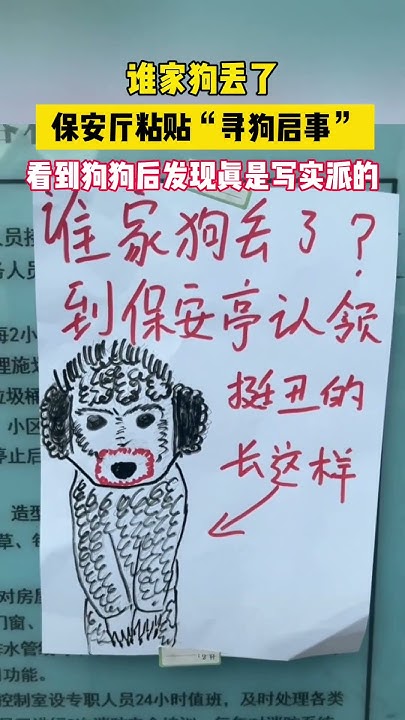 谁家狗丢了
保安厅粘贴“寻狗启事”
看到狗狗后发现真是写实派的
谁家狗丢了？
到保安亭认领
挺丑的
长这样
人员
务人员
每2小
理施
垃圾桶
小区
停止后
造型
草、每
对房屋
门窗、
排水管
功能。
控制室设专职人员24小时值班，及时处理各类